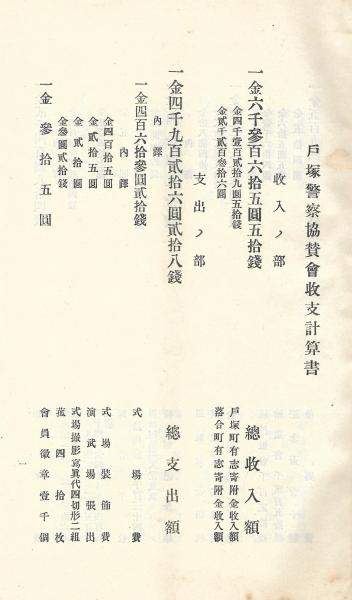 戸塚警察協賛會收支計算書
收入ノ部
一金六千參百六拾五圓五拾錢 總收入額
金四千壹百貳拾九圓五拾錢 戸塚町有志寄附金收入額
金貳千貳百參拾六圓 落合町有志寄附金收入額
支出ノ部
一金四千九百貳拾六圓貳拾八錢 總支出額
內譯
一金四百六拾參圓貳拾錢 式場費
內譯
金四百拾五圓 式場裝飾費
金貳拾五圓 演武場張出
金貳拾圓 式場撮影寫眞代四切形二組
金參圓貳拾錢 菰四拾枚
一金參拾五圓 會員徽章壹千個